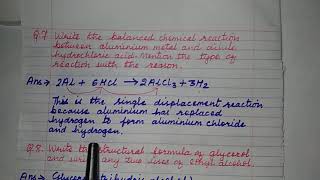 Q.7 Write the balanced chemical reaction
between aluminium metal and dilute
hydrochloric acid. Mention the type of
reaction with the reason.
Ans→ 2Al + 6HCl → 2AlCl3 + 3H2
This is the single displacement reaction
because aluminium has replaced
hydrogen to form aluminium chloride
and hydrogen.
Q.8. Write the structural formula of glycerol
and write any two uses of ethyl alcohol.
Ans→ Glycerol